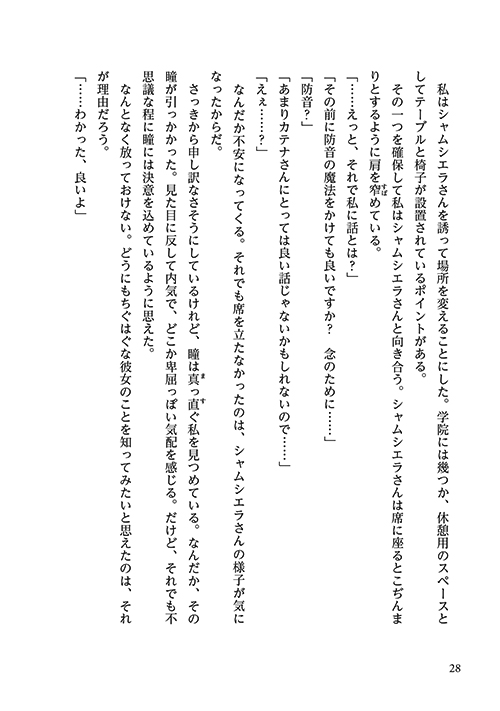 私はシャムシエラさんを誘って場所を変えることにした。学院には幾つか、休憩用のスペースと
してテーブルと椅子が設置されているポイントがある。
　その一つを確保して私はシャムシエラさんと向き合う。シャムシエラさんは席に座るとこぢんま
りとするように肩を窄めている。
「……えっと、それで私に話とは？」
「その前に防音の魔法をかけても良いですか？　念のために……」
「防音？」
「あまりカテナさんにとっては良い話じゃないかもしれないので……」
「えぇ……？」
　なんだか不安になってくる。それでも席を立たなかったのは、シャムシエラさんの様子が気に
なったからだ。
　さっきから申し訳なさそうにしているけれど、瞳は真っ直ぐ私を見つめている。なんだか、その
瞳が引っかかった。見た目に反して内気で、どこか卑屈っぽい気配を感じる。だけど、それでも不
思議な程に瞳には決意を込めているように思えた。
　なんとなく放っておけない。どうにもちぐはぐな彼女のことを知ってみたいと思えたのは、それ
が理由だろう。
「……わかった、良いよ」
28